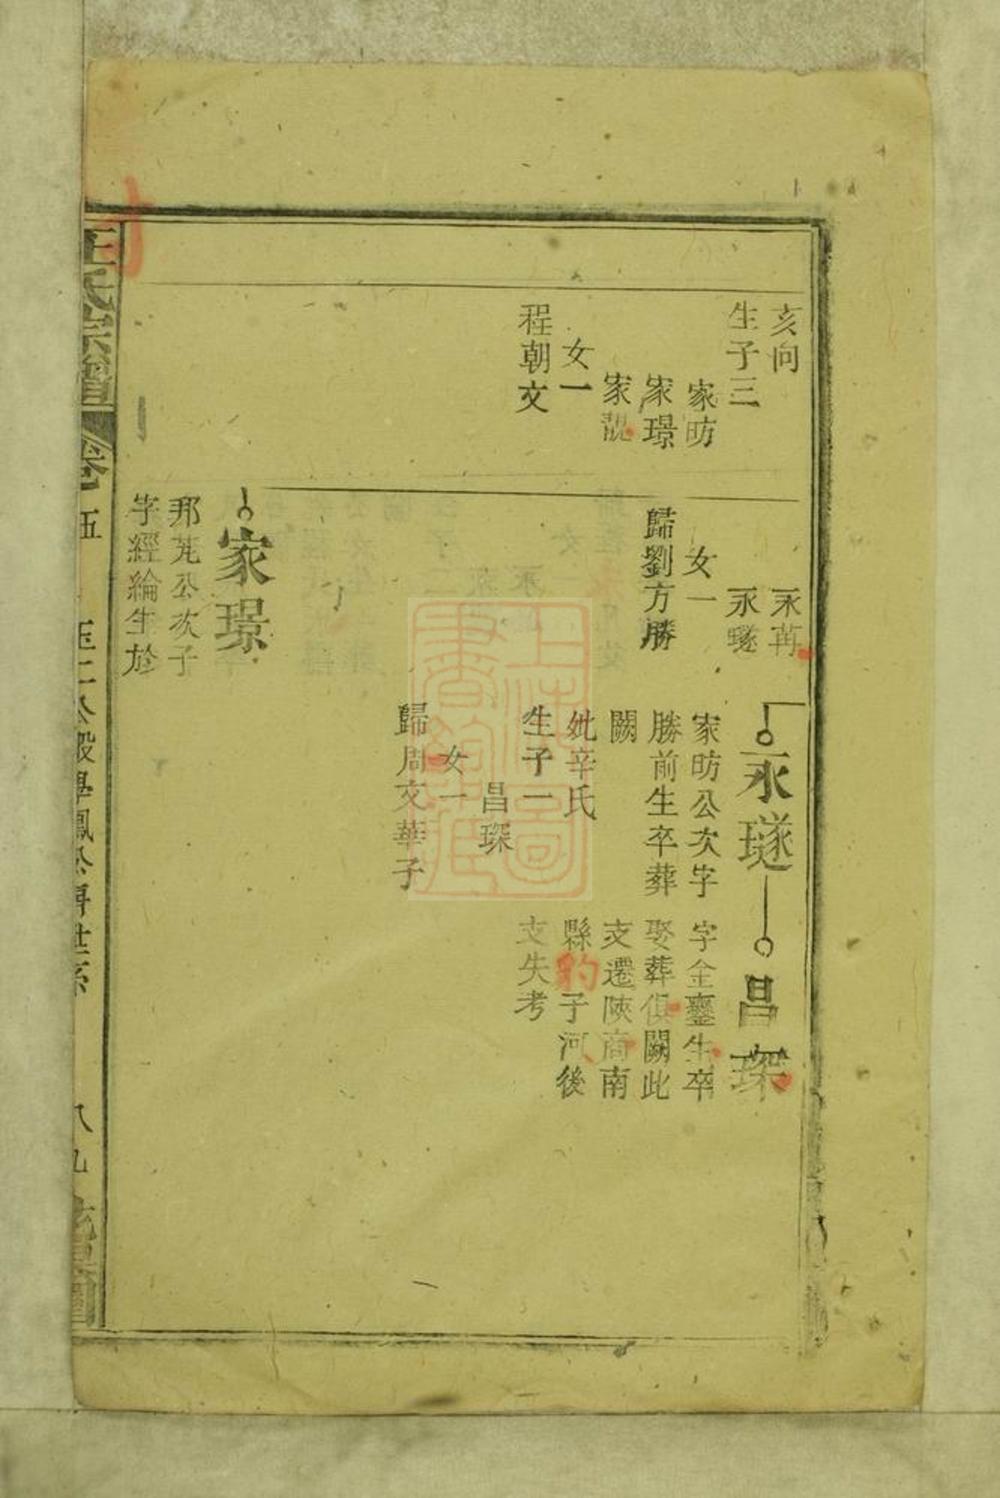 亥向
生子三
家昉
家璟
家靚
女一
程朝文
永苒
永璲
女一
歸劉方勝
永璲
家昉公次字
勝前生卒葬
闕
妣辛氏
生子一
昌琛
女一
歸周文華子
昌琛
字金鑾生卒
娶葬俱闕此
支遷陝商南
縣豹子河後
支失考
家璟
邦芄公次子
字經綸生於
王氏宗譜
卷
伍
八九
上海圖書館藏